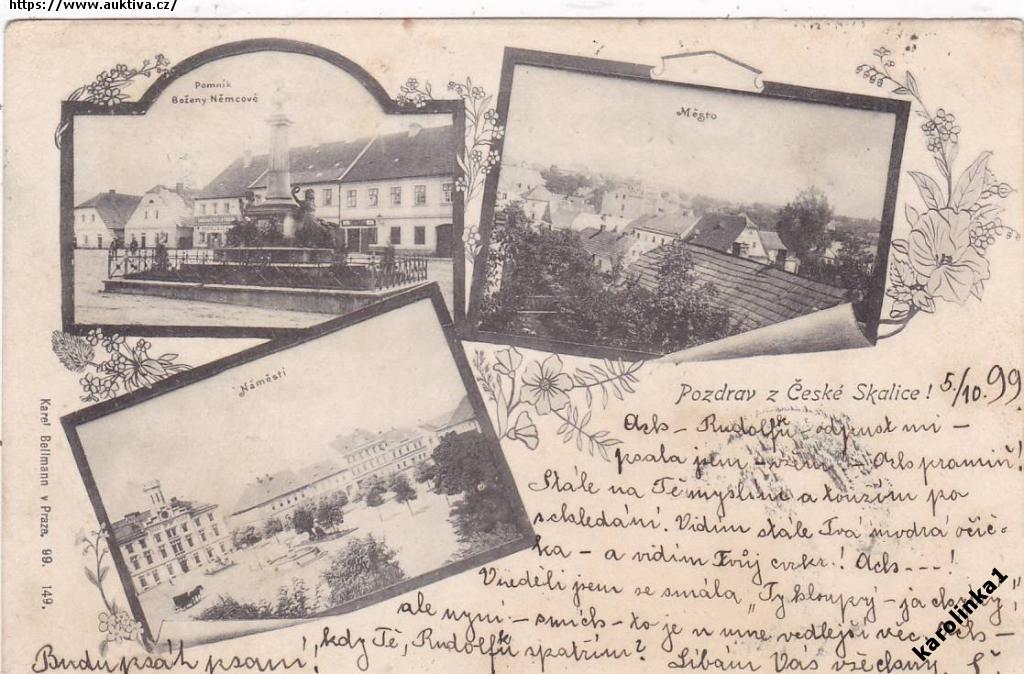 https://www.auktiva.cz/
Pomník
Boženy Němcové
Město
Náměstí
Karel Bellmann v Praze, 99. 149.
Pozdrav z České Skalice! 5./10. 99
Ach – Rudolfku – odpust mi –
psala jsem – – Ach promiň!
Stále na Tě myslím a toužím po
schledání. Vidím stále Tvá modrá očič-
ka – a vidím Tvůj cvikr! Ach – – –!
V neděli jsem se smála „Ty hloupý – já chytrý,"
ale nyní – smích – to je u mne vedlejší věc. Ach –
kdy Tě, Rudolfku spatřím? Líbám Vás všechny
Budu psát psaní!
karolinka1